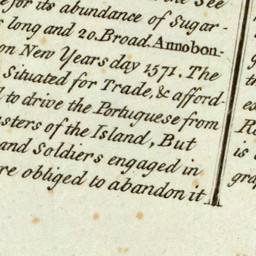 the See
e for its abundance of Sugar-
s long and 20. Broad. Annobon-
on New Years day 1571. The
Situated for Trade, & afford-
to drive the Portuguese from
sters of the Island, But
and Soldiers engaged in
re obliged to abandon it
is